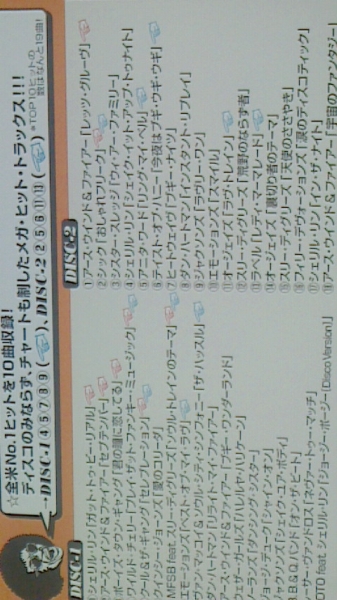 ☆全米No.1ヒットを10曲収録!
ディスコのみならず、チャートも制したメガ・ヒット・トラックス!!!
DISC-1 ④⑤⑦⑧⑨ DISC-2 ②⑤⑥⑪⑬
*TOP10ヒットの
数はなんと19曲!
DISC-1
シェリル・リン「ガット・トゥ・ビー・リアル」
アース・ウインド&ファイアー「セプテンバー」
ボーイズ・タウン・ギャング「君の瞳に恋してる」
ワイルド・チェリー「プレイ・ザット・ファンキー・ミュージック」
クール&ザ・ギャング「セレブレーション」
クインシー・ジョーンズ「愛のコリーダ」
MFSB feat. スリー・ディグリーズ「ソウル・トレインのテーマ」
エモーションズ「ベスト・オブ・マイ・ラヴ」
ヴァン・マッコイ&ソウル・シティ・シンフォニー「ザ・ハッスル」
ダン・ハートマン「リライト・マイ・ファイアー」
アース・ウインド&ファイアー「ブギー・ワンダーランド」
ウェザー・ガールズ「ハレルヤ・ハリケーン」
「ダンシング・シスター」
ジョージ・デューク「シャイン・オン」
ジャクソンズ「シェイク・ユア・ボディ」
B.B.&Q.バンド「オン・ザ・ビート」
ルーサー・ヴァンドロス「ネヴァー・トゥー・マッチ」
TOTO feat. シェリル・リン「ジョージー・ポージー [Disco Version]」
DISC-2
①アース・ウインド&ファイアー「レッツ・グルーヴ」
②シック「おしゃれフリーク」
③シスター・スレッジ「ウィ・アー・ファミリー」
④シェリル・リン「シェイク・イット・アップ・トゥナイト」
⑤アニタ・ワード「リング・マイ・ベル」
⑥テイスト・オブ・ハニー「今夜はブギ・ウギ・ウギ」
⑦ヒートウェイヴ「ブギー・ナイツ」
⑧ダン・ハートマン「インスタント・リプレイ」
⑨ジャクソンズ「ラヴリー・ワン」
⑩エモーションズ「スマイル」
⑪オージェイズ「ラヴ・トレイン」
⑫スリー・ディグリーズ「荒野のならず者」
⑬ラベル「レディ・マーマレード」
⑭オージェイズ「裏切り者のテーマ」
⑮スリー・ディグリーズ「天使のささやき」
⑯フィリー・デヴォーションズ「涙のディスコティック」
⑰シェリル・リン「イン・ザ・ナイト」
⑱アース・ウインド&ファイアー「宇宙のファンタジー」